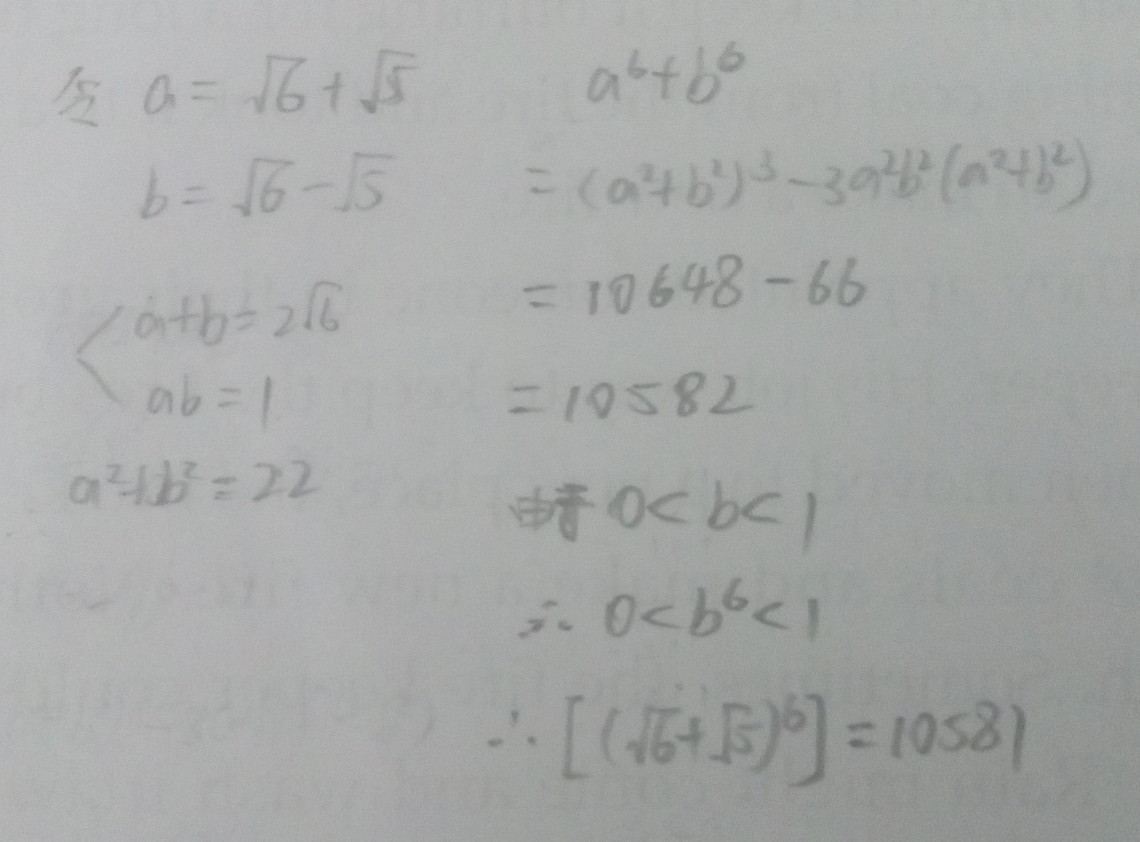 令 a = √6 + √5
b = √6 - √5
a+b = 2√6
ab = 1
a²+b² = 22
a⁶+b⁶
= (a²+b²)³ - 3a²b²(a²+b²)
= 10648 - 66
= 10582
由于 0 < b < 1
∴ 0 < b⁶ < 1
∴ [(√6+√5)⁶] = 10581